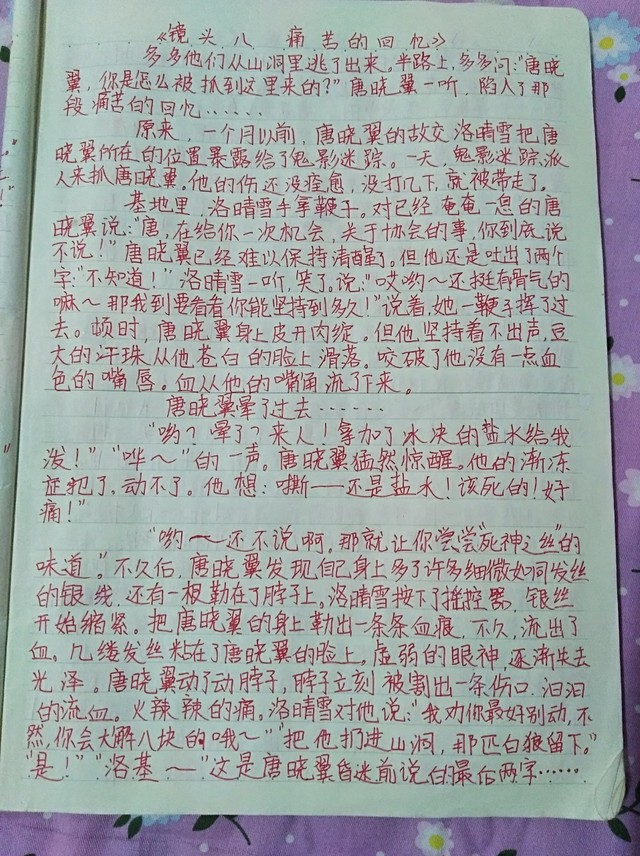 《镜头八 痛苦的回忆》
多多他们从山洞里逃了出来。半路上,多多问:“唐晓
翼,你是怎么被抓到这里来的?”唐晓翼一听,陷入了那
段痛苦的回忆……
原来,一个月以前,唐晓翼的故交洛晴雪把唐
晓翼所在的位置暴露给了鬼影迷踪。一天,鬼影迷踪派
人来抓唐晓翼。他的伤还没痊愈,没打几下,就被带走了。
基地里,洛晴雪手拿鞭子。对已经奄奄一息的唐
晓翼说:“唐,在给你一次机会,关于协会的事,你到底说
不说!”唐晓翼已经难以保持清醒了。但他还是吐出了两个
字:“不知道!”洛晴雪一听,笑了。说:“哎哟~还挺有骨气的
嘛~那我到要看看你能坚持到多久!”说着,她一鞭子挥了过
去。顿时,唐晓翼身上皮开肉绽。但他坚持着不出声,豆
大的汗珠从他苍白的脸上滑落。咬破了他没有一点血
色的嘴唇。血从他的嘴角流了下来。
唐晓翼晕了过去……
“哟?晕了?来人!拿加了冰块的盐水给我
泼!”“哗~”的一声。唐晓翼猛然惊醒。他的渐冻
症犯了,动不了。他想:嘶——还是盐水!该死的!好
痛!”
“哟~还不说啊。那就让你尝尝“死神之丝”的
味道。”不久后,唐晓翼发现自己身上多了许多细微如同发丝
的银线,还有一根勒在了脖子上。洛晴雪按下了摇控器,银丝
开始缩紧。把唐晓翼的身上勒出一条条血痕,不久,流出了
血。几缕发丝粘在了唐晓翼的脸上。虚弱的眼神,逐渐失去
光泽。唐晓翼动了动脖子,脖子立刻被割出一条伤口,汩汩
的流血。火辣辣的痛。洛晴雪对他说:“我劝你最好别动,不
然,你会大解八块的哦~”“把他扔进山洞,那匹白狼留下。”
“是!”“洛基~”这是唐晓翼昏迷前说的最后两字……